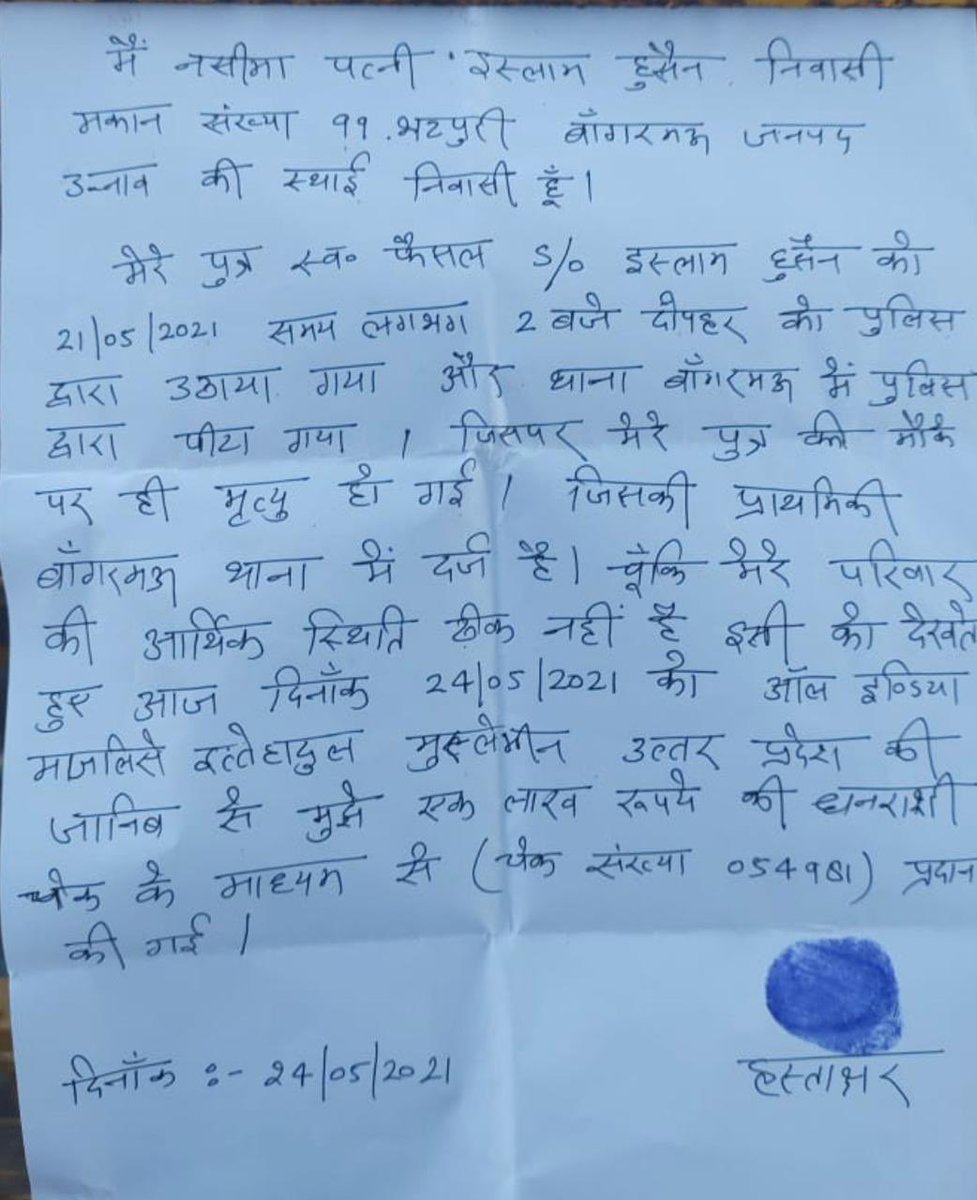 मैं नसीमा पत्नी इस्लाम हुसैन निवासी
मकान संख्या ११ भटपुरी बाँगरमऊ जनपद
उन्नाव की स्थाई निवासी हूँ।
मेरे पुत्र स्व० फैसल S/o इस्लाम हुसैन को
21/05/2021 समय लगभग 2 बजे दोपहर को पुलिस
द्वारा उठाया गया और थाना बाँगरमऊ में पुलिस
द्वारा पीटा गया । जिसपर मेरे पुत्र की मौके
पर ही मृत्यु हो गई । जिसकी प्राथमिकी
बाँगरमऊ थाना में दर्ज है। चूँकि मेरे परिवार
की आर्थिक स्थिति ठीक नहीं है इसी को देखते
हुए आज दिनाँक 24/05/2021 को ऑल इण्डिया
मजलिसे इत्तेहादुल मुस्लेमीन उत्तर प्रदेश की
जानिब से मुझे एक लाख रूपये की धनराशी
चेक के माध्यम से (चेक संख्या 054981) प्रदान
की गई ।
दिनाँक :- 24/05/2021
हस्ताक्षर